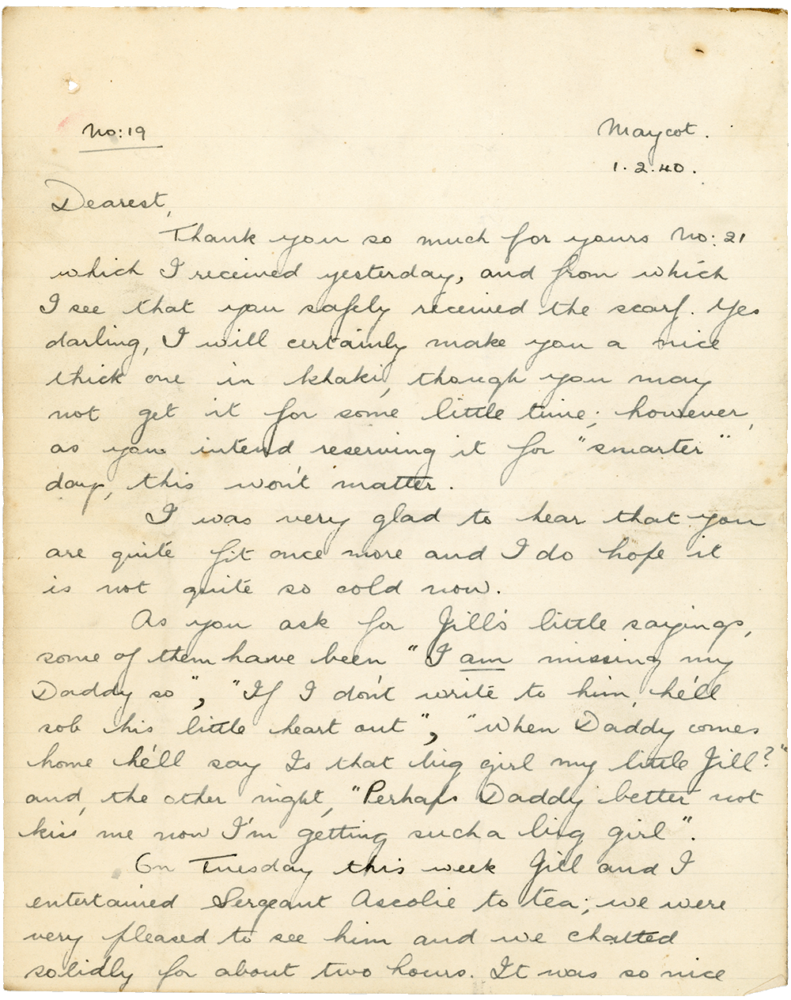 No: 19
Maycot.
1.2.40.
Dearest,
Thank you so much for yours No: 21
which I received yesterday, and from which
I see that you safely received the scarf. Yes
darling, I will certainly make you a nice
thick one in khaki, though you may
not get it for some little time; however,
as you intend reserving it for "smarter"
day, this won't matter.
I was very glad to hear that you
are quite fit once more and I do hope it
is not quite so cold now.
As you ask for Jill's little sayings,
some of them have been "I am missing my
Daddy so", "If I don't write to him, he'll
sob his little heart out", "when Daddy comes
home he'll say Is that big girl my little Jill?"
and, the other night, "Perhaps Daddy better not
kiss me now I'm getting such a big girl".
On Tuesday this week Jill and I
entertained Sergeant Ascolie to tea; we were
very pleased to see him and we chatted
solidly for about two hours. It was so nice